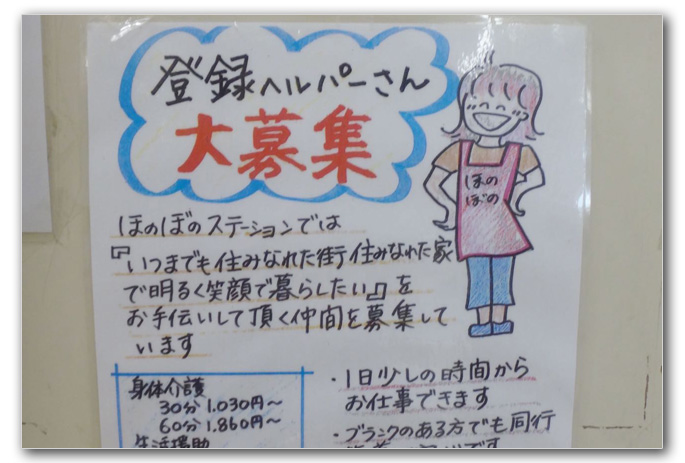 登録ヘルパーさん
大募集
ほの
ぼの
ほのぼのステーションでは
『いつまでも住みなれた街住みなれた家
で明るく笑顔で暮らしたい』を
お手伝いして頂く仲間を募集して
います
身体介護
30分 1.030円〜
60分 1.860円〜
生活援助
・1日少しの時間から
お仕事できます
・ブランクのある方でも同行